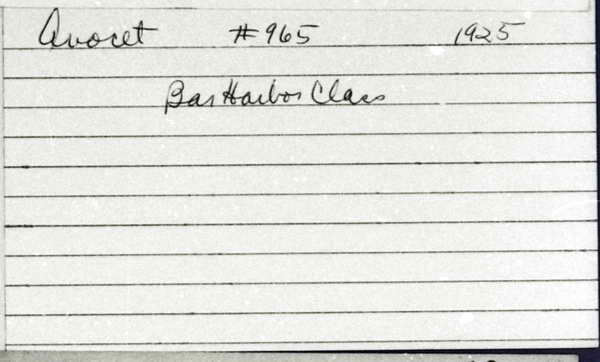 Avocet #965 1925
Bar Harbor Class